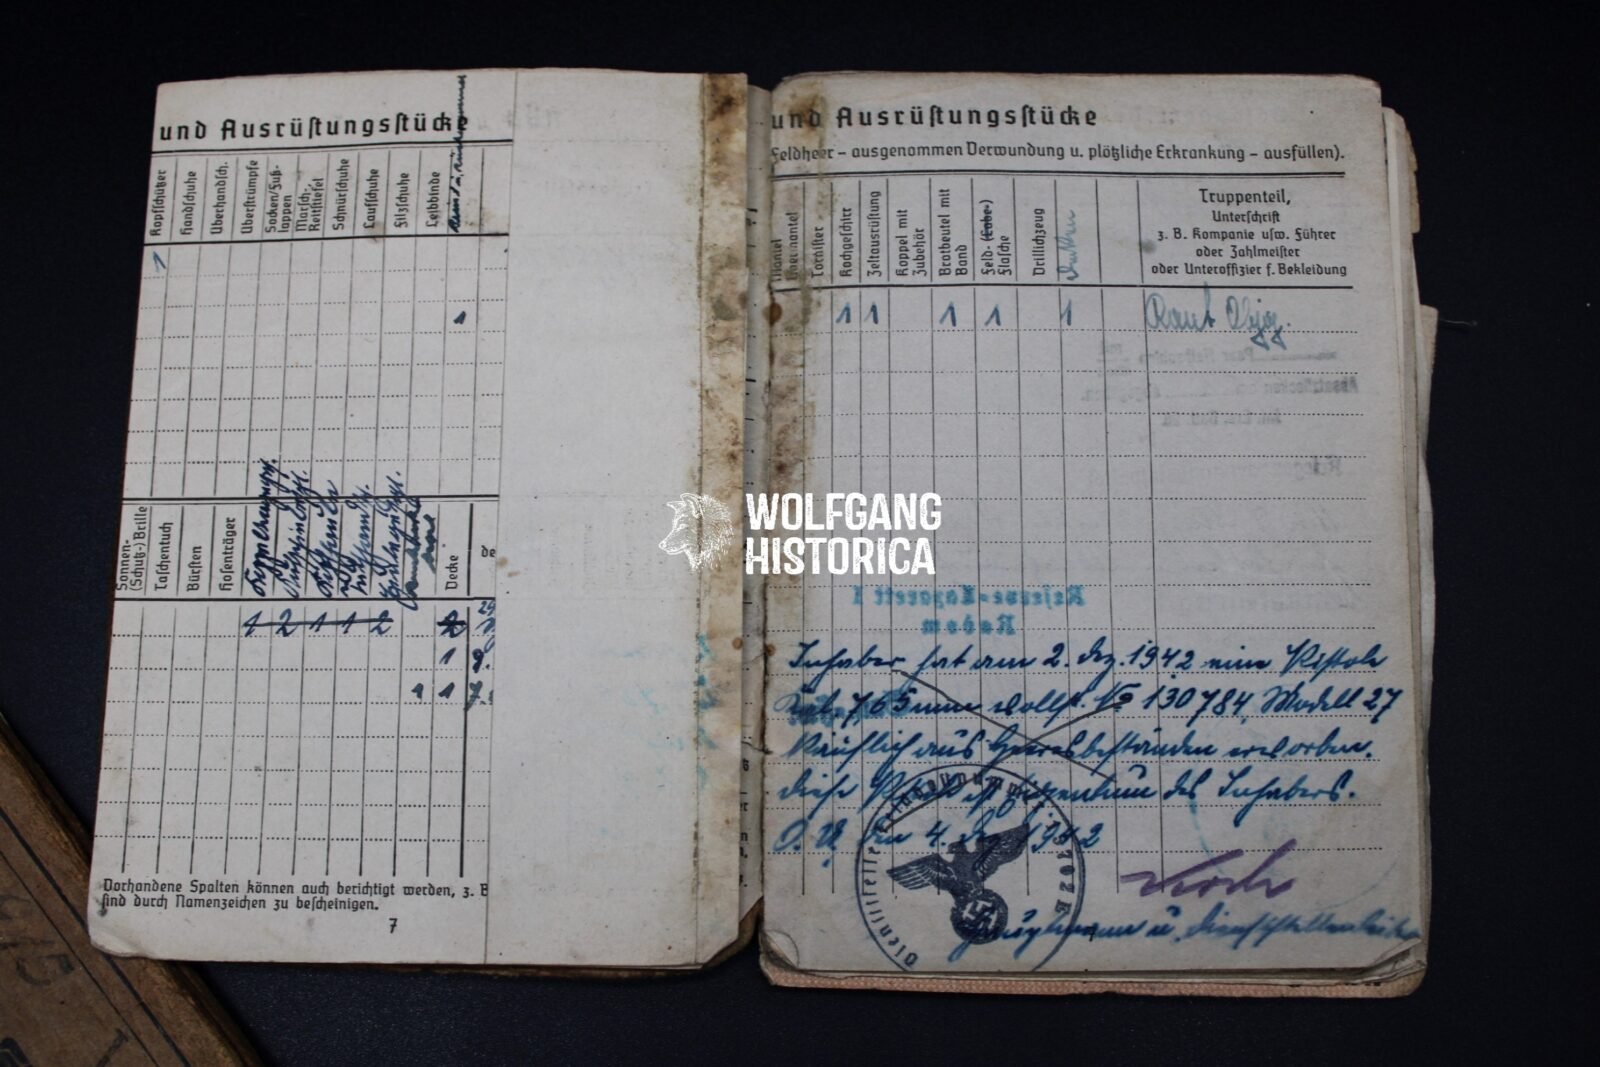 und Ausrüstungsstücke
Kopfschützer
Handschuhe
Überhandsch.
Überstrümpfe
Socken/Fuß-
lappen
Marsch-
Reitstiefel
Schnürschuhe
Laufschuhe
Filzschuhe
Leibbinde
1
1
Sonnen-
(Schutz-) Brille
Taschentuch
Bürsten
Hosenträger
Decke
de
1 2 1 1 2 2
1
1 1
Vorhandene Spalten können auch berichtigt werden, z. B
sind durch Namenzeichen zu bescheinigen.
7
und Ausrüstungsstücke
Feldheer – ausgenommen Verwundung u. plötzliche Erkrankung – ausfüllen).
Mantel
Tornister
Kochgeschirr
Zeltausrüstung
Koppel mit
Zubehör
Brotbeutel mit
Band
Feld- (Labe-)
Flasche
Drillichzeug
Truppenteil,
Unterschrift
z. B. Kompanie usw. Führer
oder Zahlmeister
oder Unteroffizier f. Bekleidung
1 1 1 1 1
WOLFGANG
HISTORICA
Reserve-Lazarett I
Radom
Inhaber hat am 2. Dez. 1942 eine Pistole
Kal. 7,65 mm vollst. No 130784, Modell 27
käuflich aus Heeresbeständen erworben.
Diese Pistole ist Eigentum des Inhabers.
O. U. den 4. Dez. 1942
Dienststelle Feldpostnummer
Koch
Hauptmann u. Dienststellenleiter